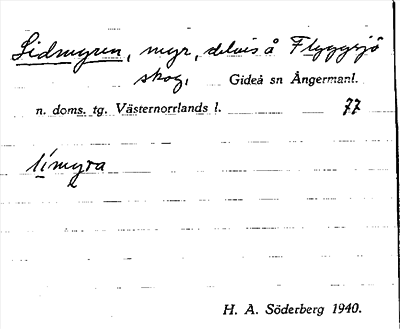 Lidmyren, myr, delvis å Flyggsjö
skog,  Gideå sn Ångermanl.
n. doms. tg. Västernorrlands l.  77
límyra
H. A. Söderberg 1940.